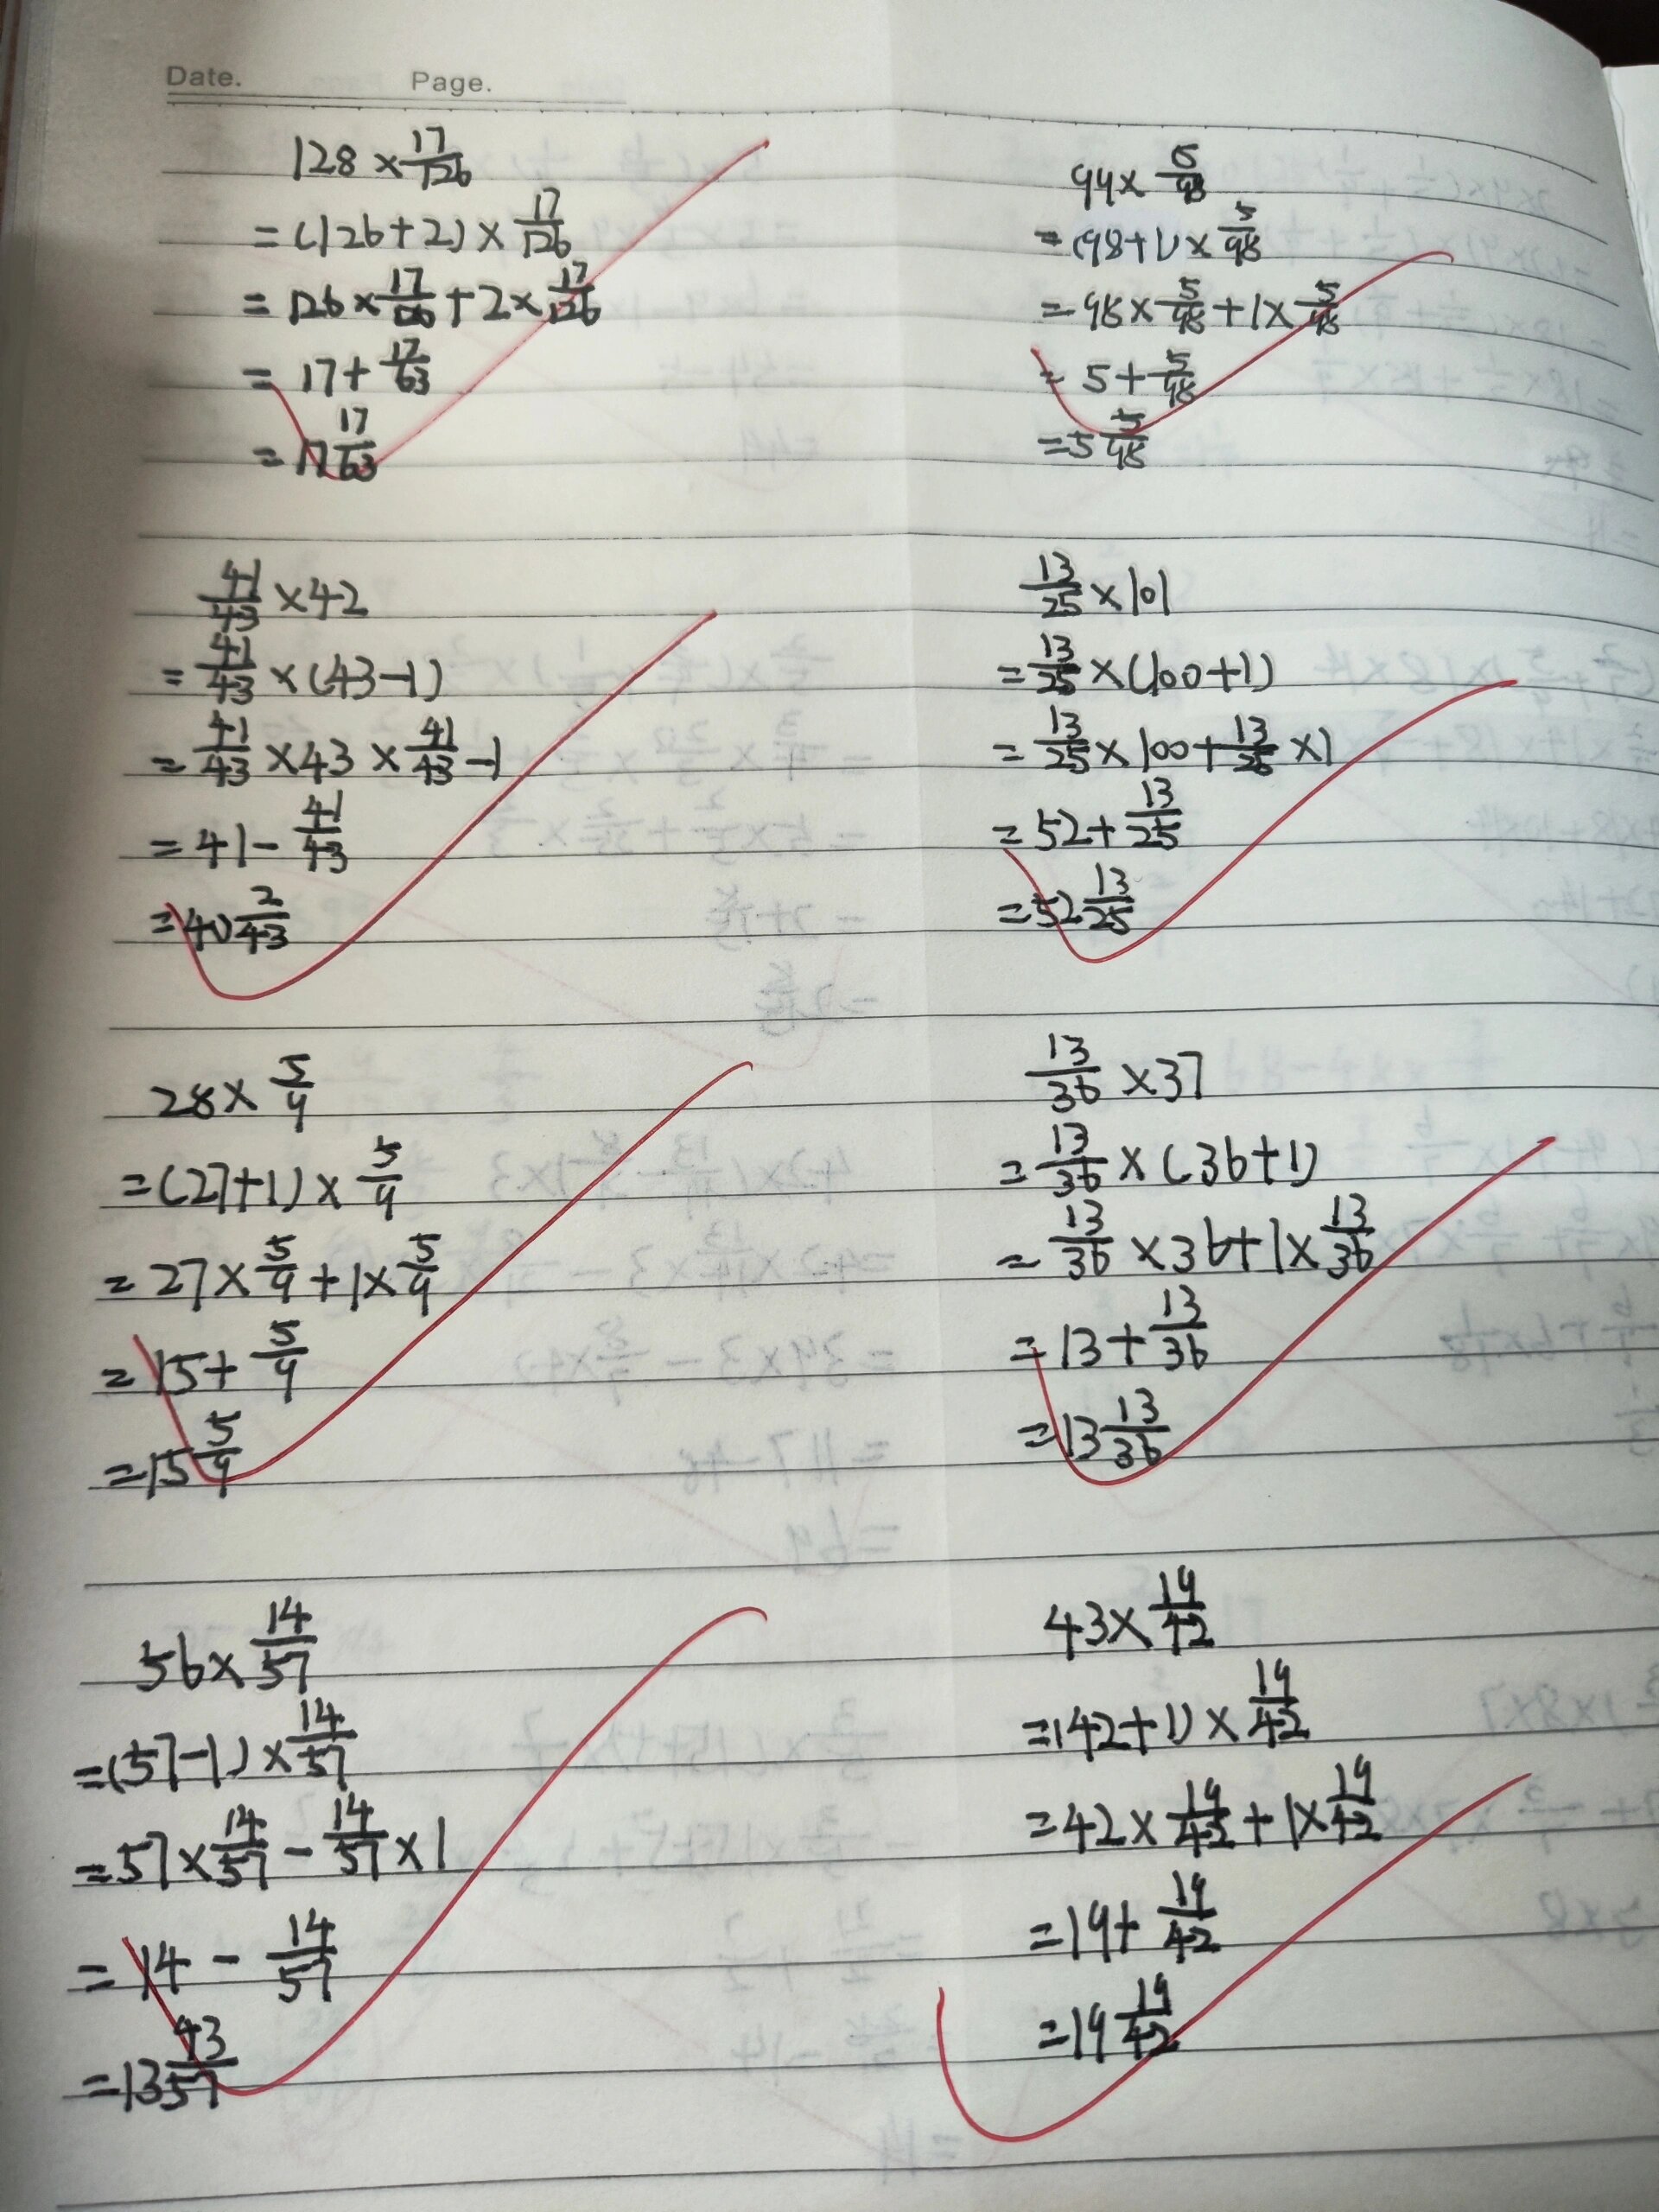 Date. Page.
128×17/126
=(126+2)×17/126
=126×17/126+2×17/126
=17+17/63
=17 17/63
99×5/98
=(98+1)×5/98
=98×5/98+1×5/98
=5+5/98
=5 5/98
41/43×42
=41/43×(43-1)
=41/43×43×41/43-1
=41-41/43
=40 2/43
13/25×101
=13/25×(100+1)
=13/25×100+13/25×1
=52+13/25
=52 13/25
28×5/9
=(27+1)×5/9
=27×5/9+1×5/9
=15+5/9
=15 5/9
13/36×37
=13/36×(36+1)
=13/36×36+1×13/36
=13+13/36
=13 13/36
56×14/57
=(57-1)×14/57
=57×14/57-14/57×1
=14-14/57
=13 43/57
43×19/42
=(42+1)×19/42
=42×19/42+1×19/42
=19+19/42
=19 19/42